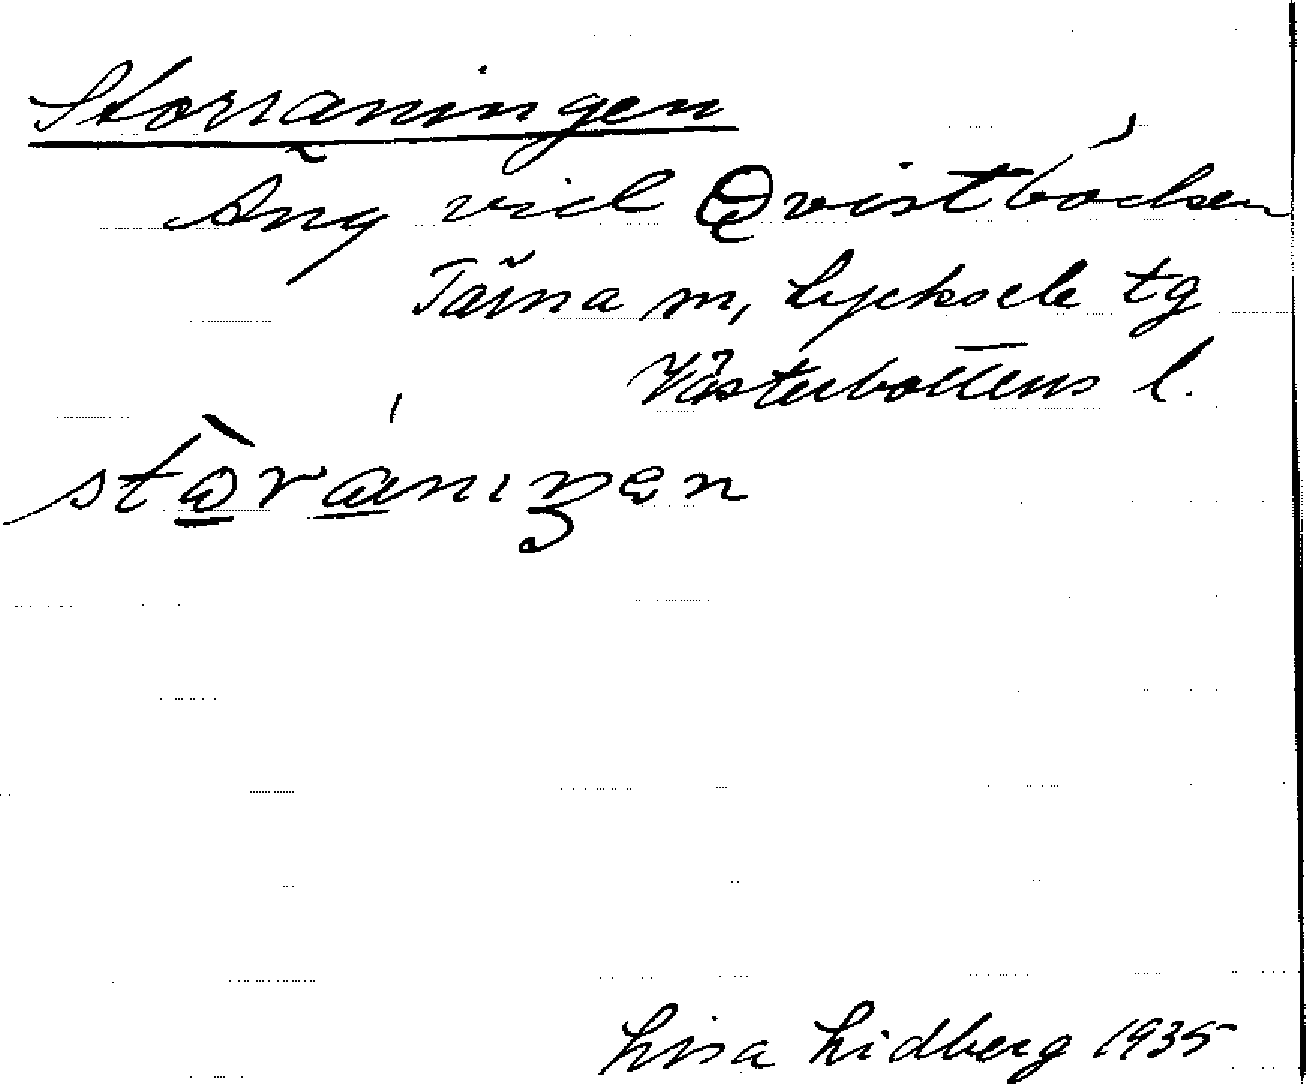 Storraningen
Äng vid Qvistbäcken
Tärna sn, Lycksele tg
Västerbottens l.
stòraningen
Lisa Lidberg 1935